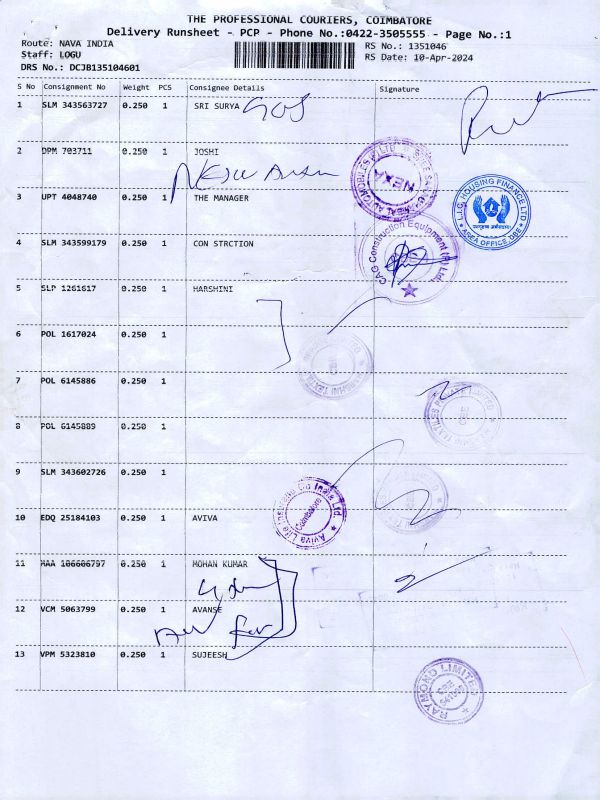 THE PROFESSIONAL COURIERS, COIMBATORE
Delivery Runsheet - PCP - Phone No.:0422-3505555 - Page No.:1
Route: NAVA INDIA RS No.: 1351046
Staff: LOGU RS Date: 10-Apr-2024
DRS No.: DCJB135104601
S No Consignment No Weight PCS Consignee Details Signature
1 SLM 343563727 0.250 1 SRI SURYA
2 DPM 703711 0.250 1 JOSHI
3 UPT 4048740 0.250 1 THE MANAGER
NEXA
L.I.C HOUSING FINANCE LTD
AREA OFFICE CBE
4 SLM 343599179 0.250 1 CON STRCTION
CAG Construction Equipment (P) Ltd.
5 SLP 1261617 0.250 1 HARSHINI
6 POL 1617024 0.250 1
7 POL 6145886 0.250 1
8 POL 6145889 0.250 1
9 SLM 343602726 0.250 1
10 EDQ 25184103 0.250 1 AVIVA
Aviva Life Insurance Co India Ltd
Coimbatore
11 MAA 106606797 0.250 1 MOHAN KUMAR
12 VCM 5063799 0.250 1 AVANSE
13 VPM 5323810 0.250 1 SUJEESH
RAYMOND LIMITED